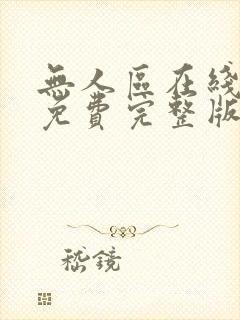 無人區在綫
免費完整版
嵇鏡